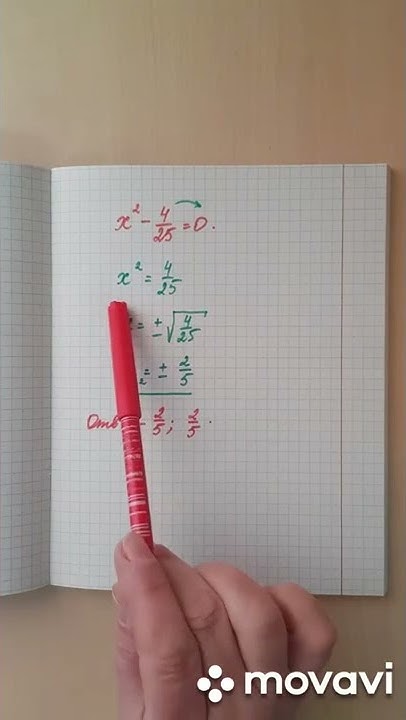 x² - 4/25 = 0.
x² = 4/25
= ± √4/25
₂ = ± 2/5
- 2/5; 2/5.
movavi